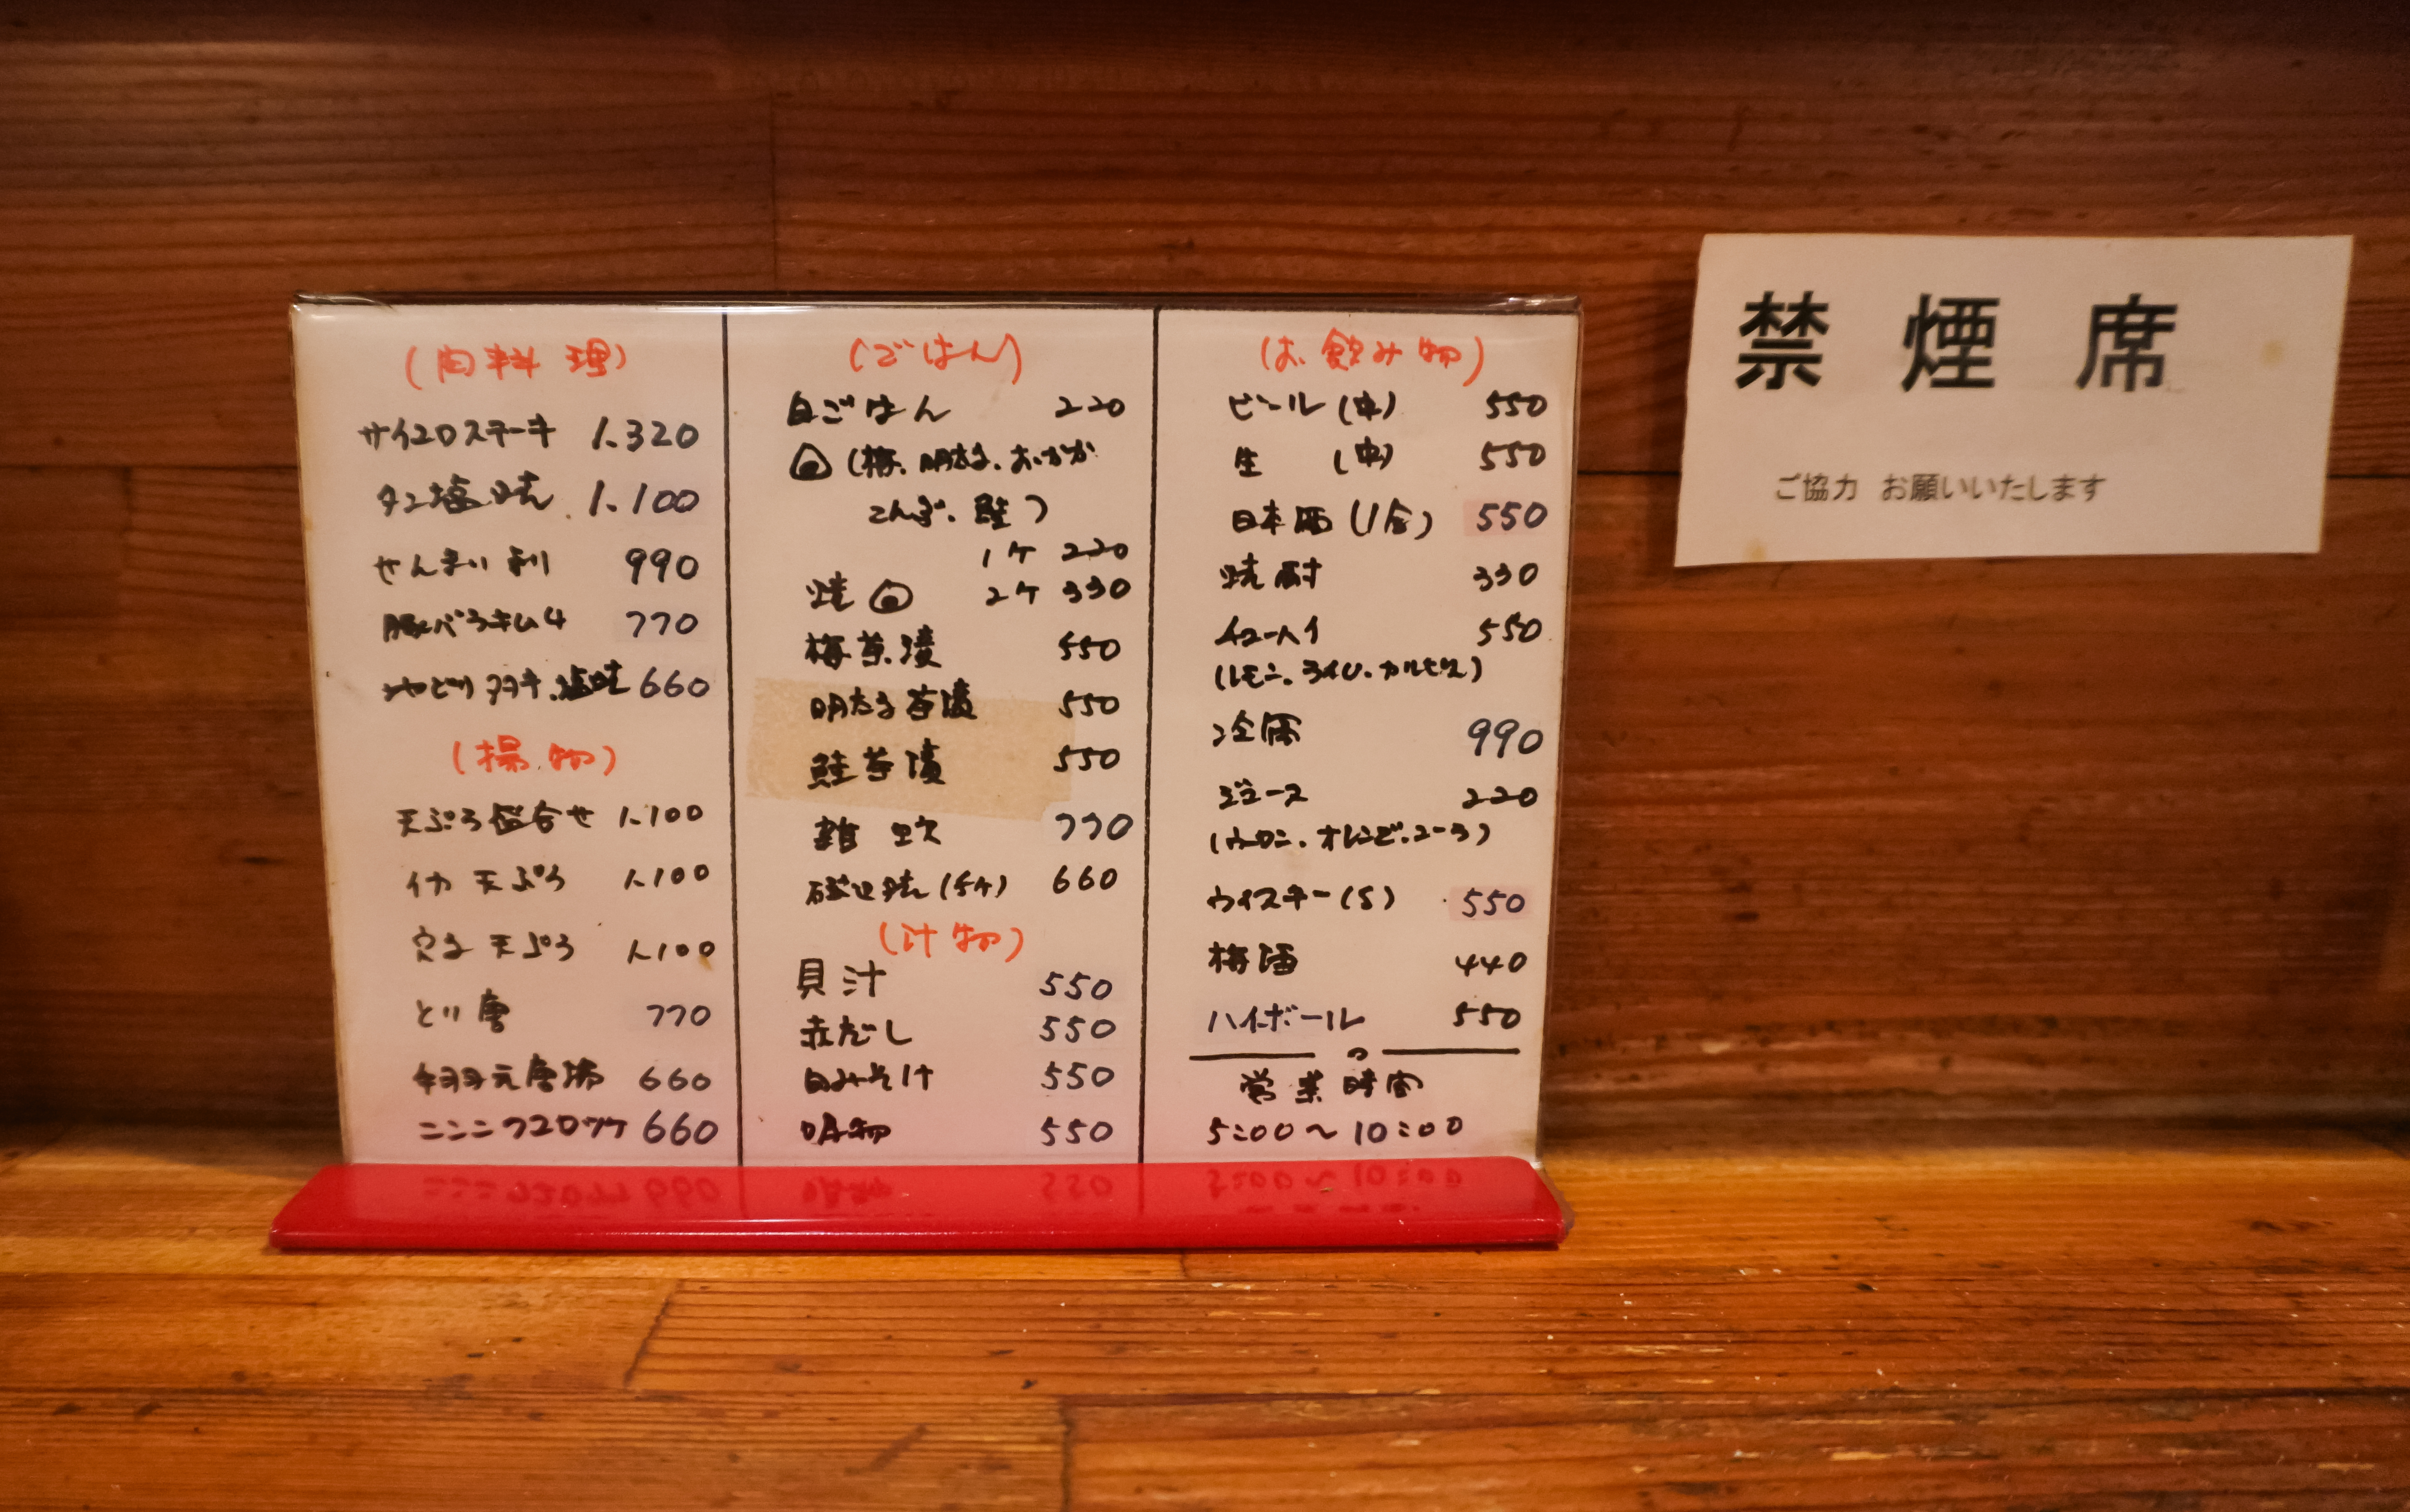 (肉料理)
サイコロステーキ 1.320
タン塩焼 1.100
せんまい刺 990
豚バラキムチ 770
ひやどり タタキ.塩焼 660
(揚物)
天ぷら盛合せ 1.100
イカ 天ぷら 1.100
穴子 天ぷら 1.100
とり唐 770
唐揚 660
ニンニクコロッケ 660
(ごはん)
白ごはん 220
(梅.明太子.おかか
こんぶ.鮭)
1ケ 220
焼 2ケ 330
梅茶漬 550
明太子茶漬 550
鮭茶漬 550
雑炊 770
磯辺焼(5ケ) 660
(汁物)
貝汁 550
赤だし 550
白みそ汁 550
吸物 550
(お飲み物)
ビール(中) 550
生 (中) 550
日本酒(1合) 550
焼酎 330
チューハイ 550
(レモン.ライム.カルピス)
冷酒 990
ジュース 220
(ウーロン.オレンジ.コーラ)
ウイスキー(S) 550
梅酒 440
ハイボール 550
営業時間
5:00〜10:00
禁煙席
ご協力 お願いいたします